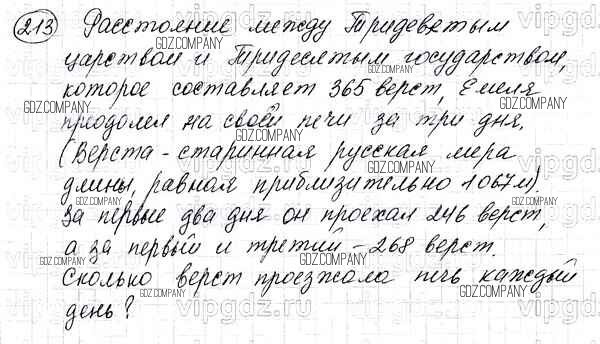 213 Расстояние между Тридевятым
царством и Тридесятым государством,
которое составляет 365 верст, Емеля
преодолел на своей печи за три дня.
(Верста - старинная русская мера
длины, равная приблизительно 1067 м).
За первые два дня он проехал 246 верст,
а за первый и третий - 268 верст.
Сколько верст проезжала печь каждый
день?
GDZ.COMPANY
vipgdz.ru